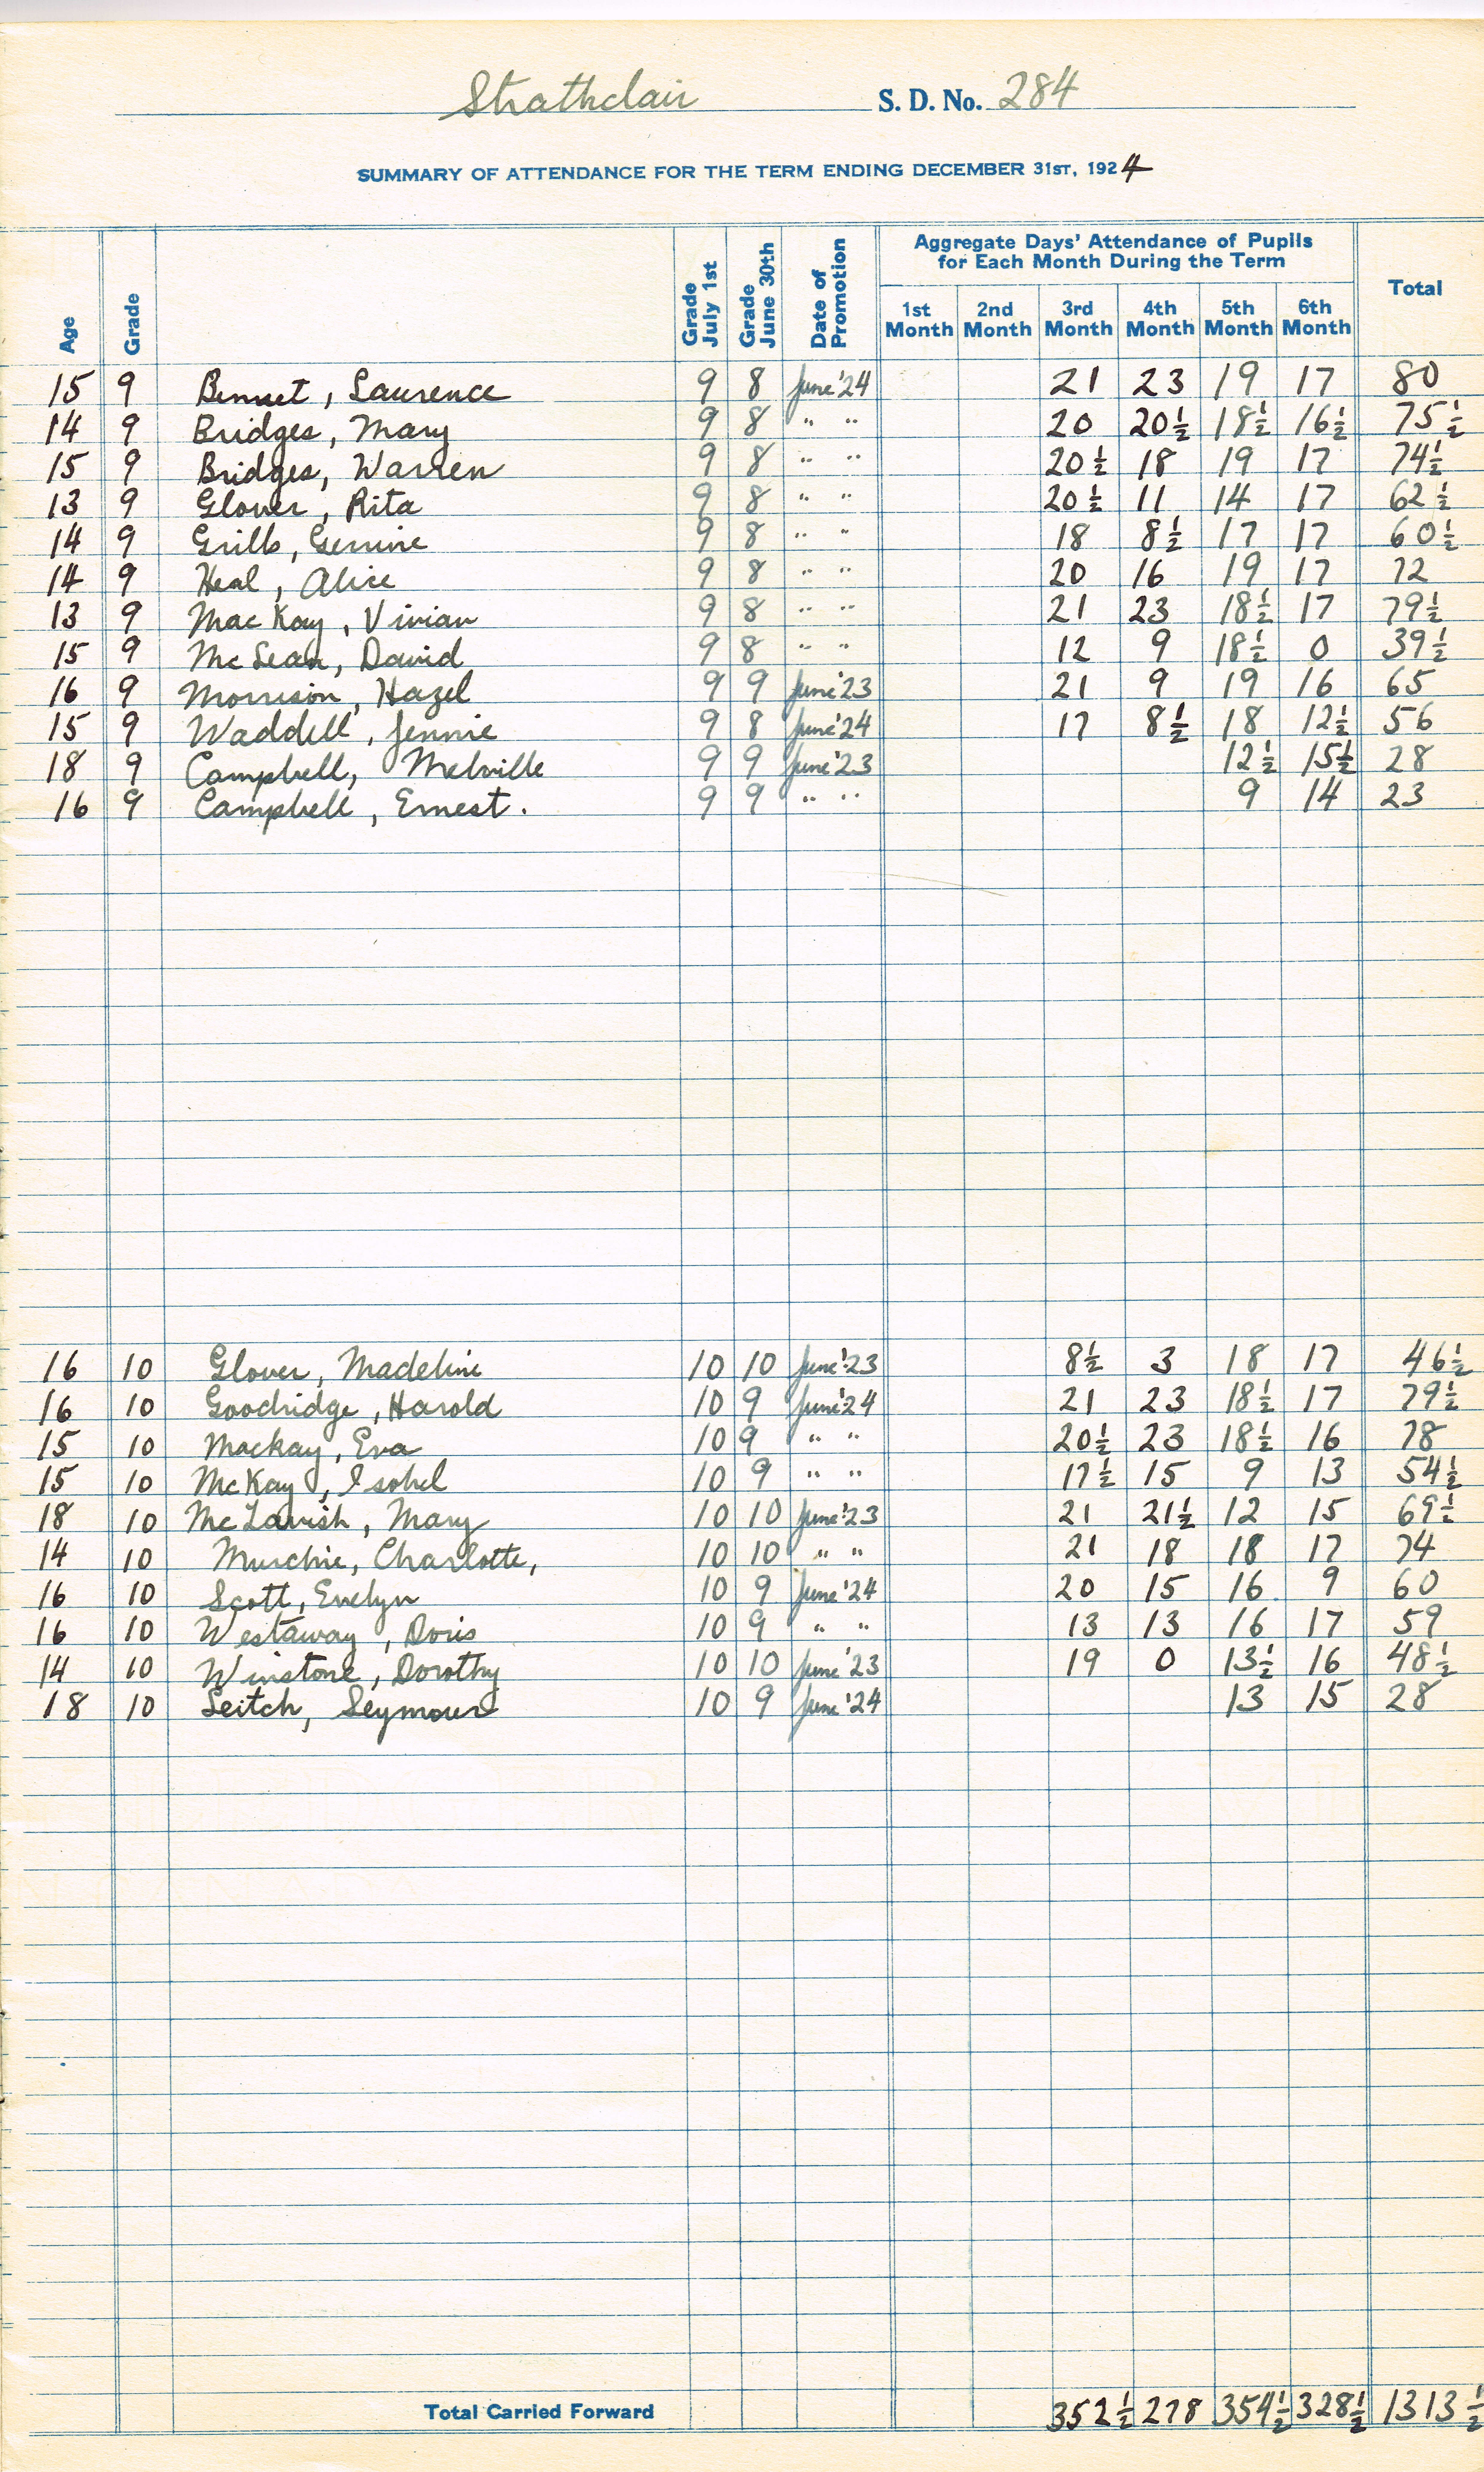 Strathclair S. D. No. 284
SUMMARY OF ATTENDANCE FOR THE TERM ENDING DECEMBER 31ST, 1924
Age Grade Grade July 1st Grade June 30th Date of Promotion Aggregate Days' Attendance of Pupils for Each Month During the Term Total
1st Month 2nd Month 3rd Month 4th Month 5th Month 6th Month
15 9 Bennet, Laurence 9 8 June '24 21 23 19 17 80
14 9 Bridges, Mary 9 8 " " 20 20½ 18½ 16½ 75½
15 9 Bridges, Warren 9 8 " " 20½ 18 19 17 74½
13 9 Glover, Rita 9 8 " " 20½ 11 14 17 62½
14 9 Grills, 9 8 " " 18 8½ 17 17 60½
14 9 Heal, Alice 9 8 " " 20 16 19 17 72
13 9 MacKay, Vivian 9 8 " " 21 23 18½ 17 79½
15 9 McLean, David 9 8 " " 12 9 18½ 0 39½
16 9 Morrison, Hazel 9 9 June '23 21 9 19 16 65
15 9 Waddell, Jennie 9 8 June '24 17 8½ 18 12½ 56
18 9 Campbell, Melville 9 9 June '23 12½ 15½ 28
16 9 Campbell, Ernest. 9 9 " " 9 14 23
16 10 Glover, Madeline 10 10 June '23 8½ 3 18 17 46½
16 10 Goodridge, Harold 10 9 June '24 21 23 18½ 17 79½
15 10 Mackay, Eva 10 9 " " 20½ 23 18½ 16 78
15 10 McKay, Isobel 10 9 " " 17½ 15 9 13 54½
18 10 McTavish, Mary 10 10 June '23 21 21½ 12 15 69½
14 10 Murchie, Charlotte, 10 10 " " 21 18 18 17 74
16 10 Scott, Evelyn 10 9 June '24 20 15 16 9 60
16 10 Westaway, Doris 10 9 " " 13 13 16 17 59
14 10 Winstone, Dorothy 10 10 June '23 19 0 13½ 16 48½
18 10 Leitch, Seymour 10 9 June '24 13 15 28
Total Carried Forward 352½ 278 354½ 328½ 1313½